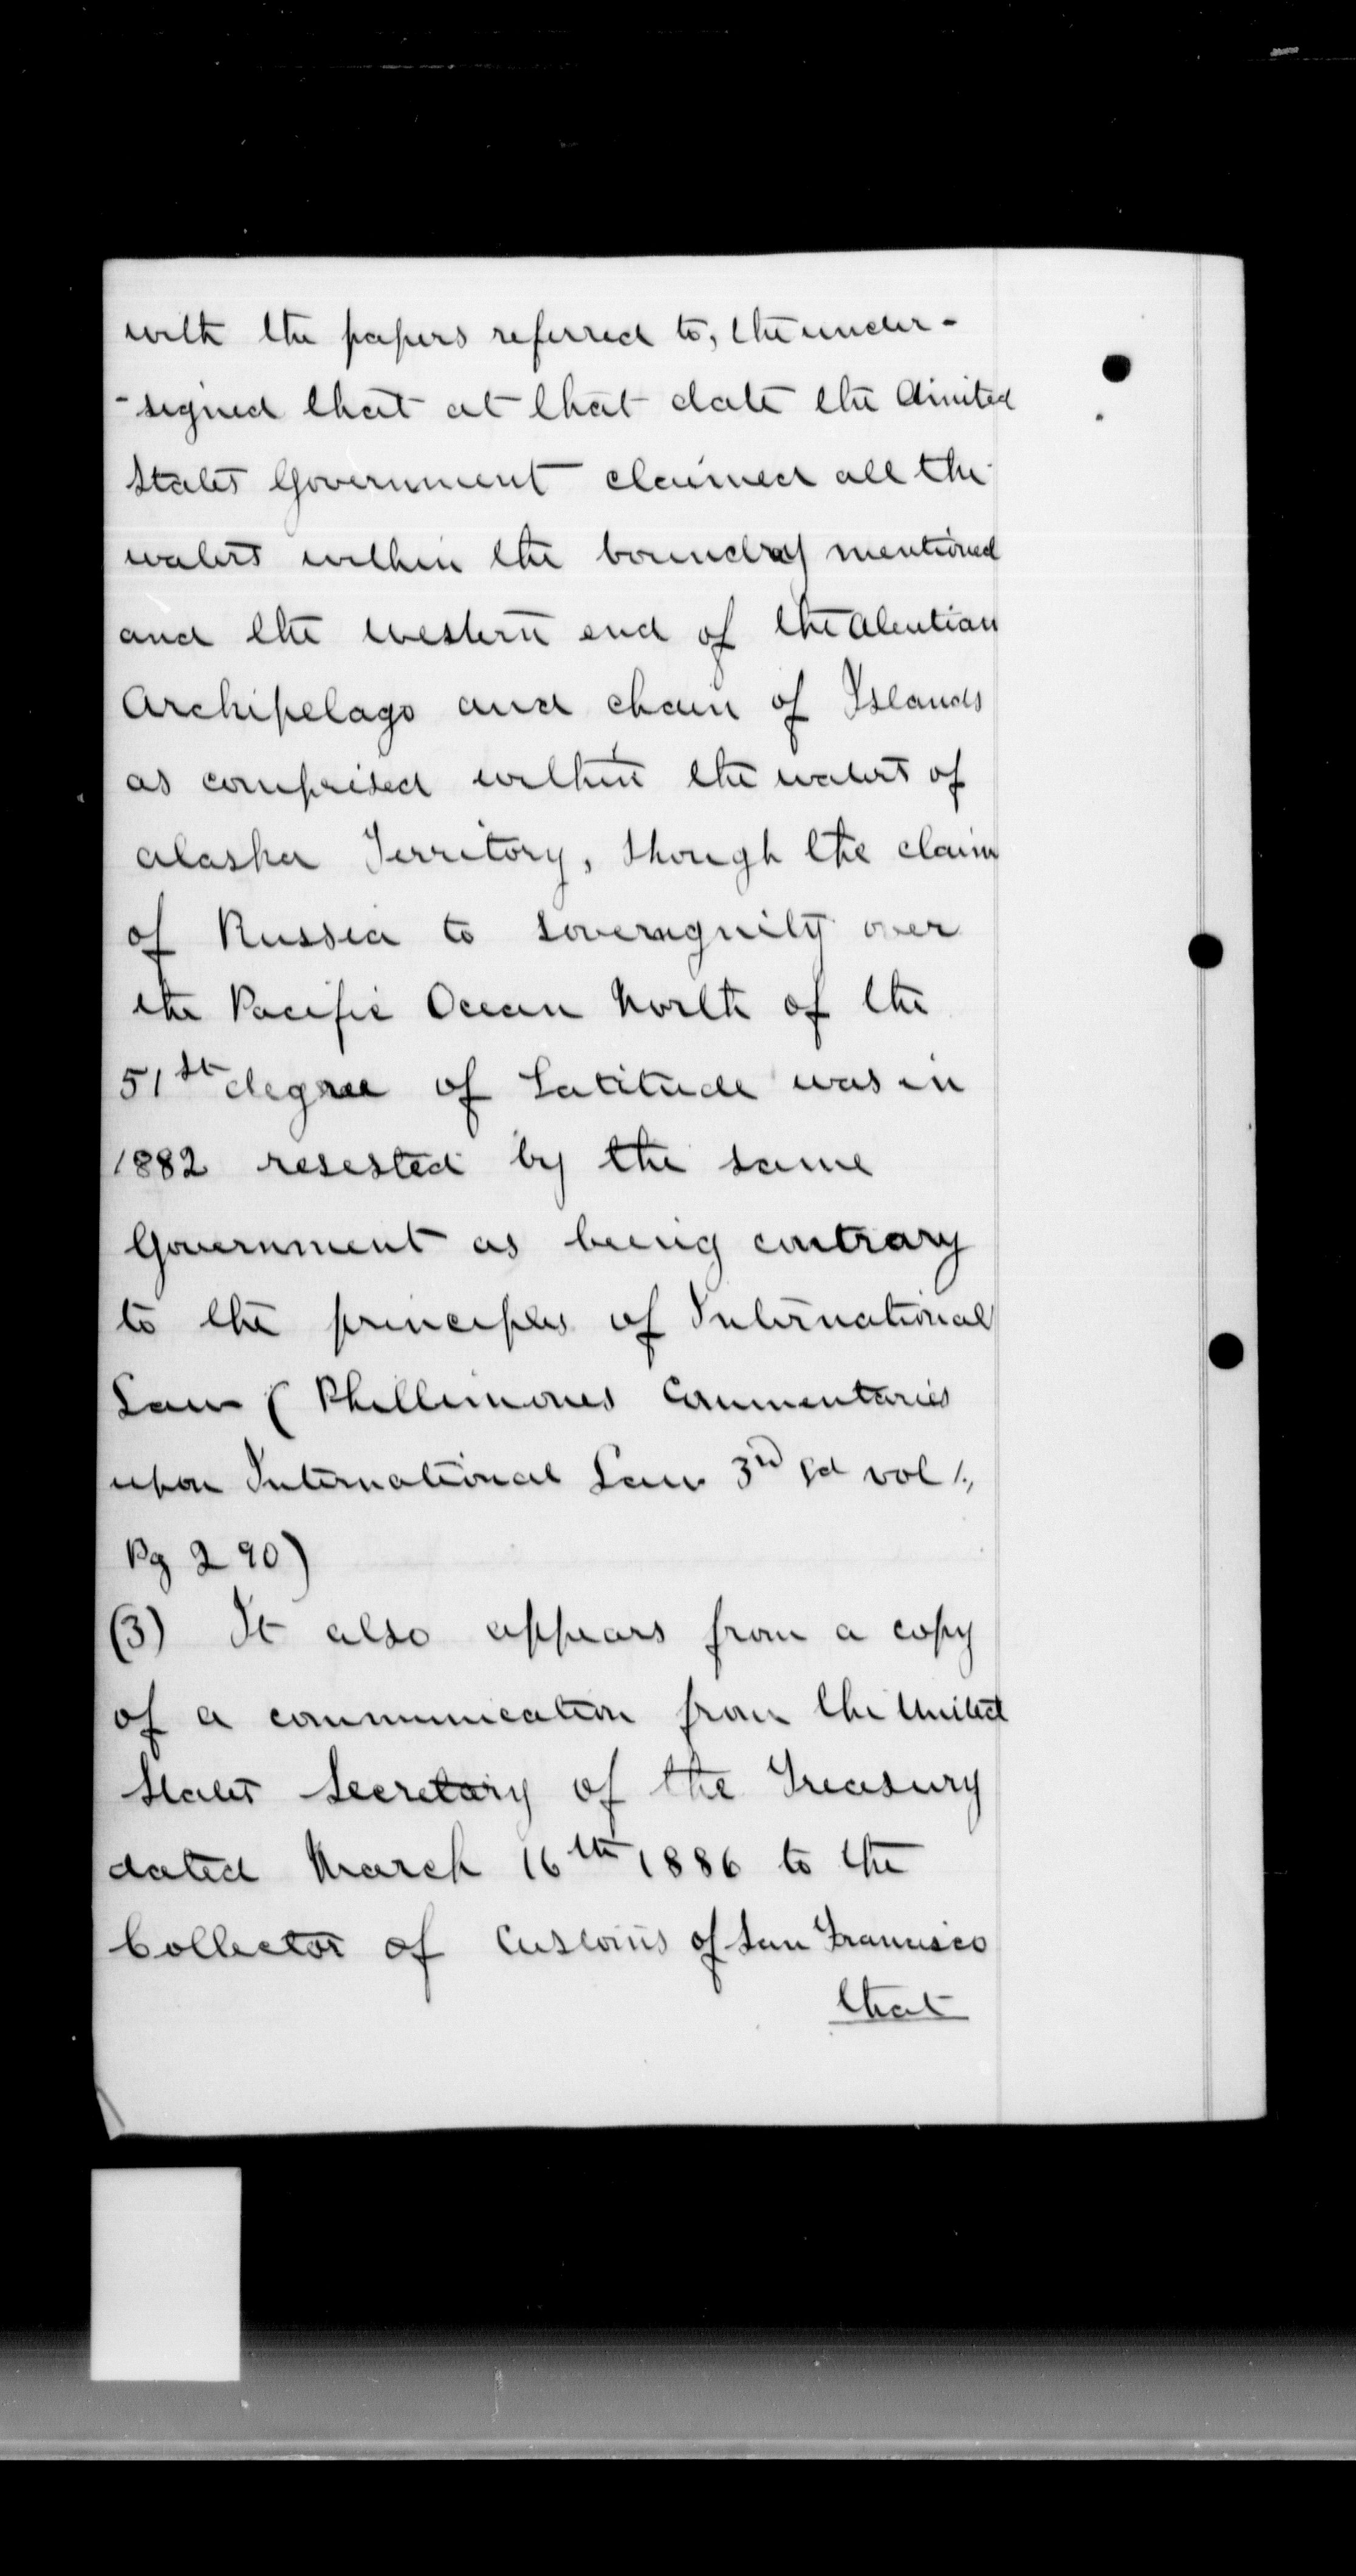 with the papers referred to, the under-
-signed that at that date the United
States Government claimed all the
waters within the boundry mentioned
and the western end of the Aleutian
Archipelago and chain of Islands
as comprised within the waters of
Alaska Territory, though the claim
of Russia to soveragnity over
the Pacific Ocean North of the
51st degree of Latitude was in
1882 resested by the same
Government as being contrary
to the principles of International
Law ( Phillimores Commentaries
upon International Law 3rd Ed vol 1.,
Pg 290)
(3) It also appears from a copy
of a communication from the United
States Secretary of the Treasury
dated March 16th 1886 to the
Collector of Customs of San Francisco
that